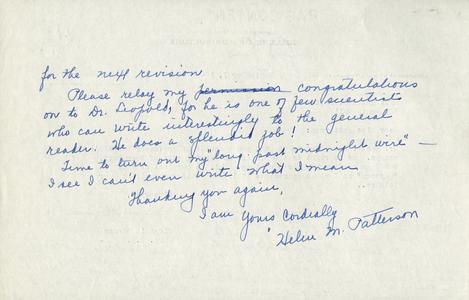 for the next revision
Please relay my permission congratulations
on to Dr. Leopold, for he is one of few scientists
who can write interestingly to the general
reader. He does a splendid job!
Time to turn out my "long past midnight wire" —
I see I can't even write what I mean
Thanking you again,
I am Yours Cordially
Helen M. Patterson